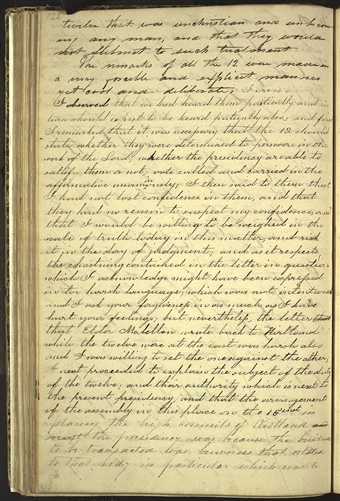 twelve that was unchristian and unbecom-
ing any man, and that they would
not submit to such treatment
The remarks of all the 12 were made in
a very forcible and explicit manner
yet cool and deliberate;
I observed that we had heard them patiently and in
turn should expect to be heard patiently also; and first
I remarked that it was necessary that the 12 should
state whether they were determined to persevere in the
work of the Lord, whether the presidency are able to
satisfy them or not; vote called and carried in the
affirmative unanimously; I then said to them that
I had not lost confidence in them, and that
they had no reason to suspect my confidence, and
that I would be willing to be weighed in the
scale of truth today in this matter, and risk
it in the day of judgment; and as it respects
the chastning contained in the letter in question
which I acknowledge might have been expressed
in too harsh language; which was not intentional
and I ask your forgiveness in as much as I have
hurt your feelings; but nevertheless, the letter
that Elder McLellin wrote back to Kirtland
while the twelve were at the east was harsh also
and I was willing to set the one against the other;
I next proceeded to explain the subject of the duty
of the twelve; and their authority which is next to
the present presidency, and that the arrangement
of the assembly in this place on the 15 inst in
placing the high councils of Kirtland
next the presidency was because the business
to be transacted was business that related
to that body in particular which was to